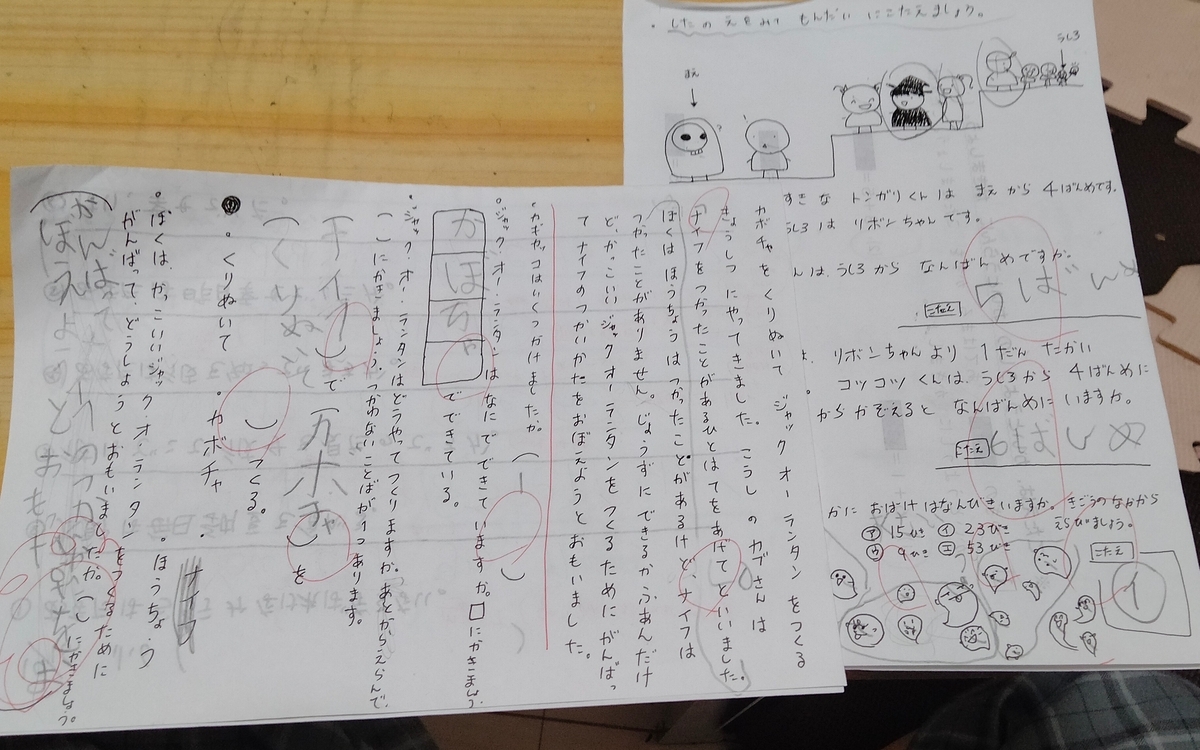 ・したのえをみて もんだいにこたえましょう。
まえ
うしろ
すきな トンガリくんは まえから 4ばんめです。
うしろは リボンちゃんです。
んは、うしろから なんばんめですか。
こたえ
5ばんめ
リボンちゃんより 1だん たかい
コツコツくんは、うしろから 4ばんめに
からかぞえると なんばんめに いますか。
こたえ
6ばんめ
かに おばけは なんびきいますか。きごうのなかから
えらびましょう。
㋐ 15ひき ㋑ 23びき
㋒ 9ひき ㋓ 53びき
こたえ
イ
カボチャを くりぬいて ジャック オー ランタン をつくる
きょうしつ にやってきました。こうし の カブさんは
ナイフをつかったことがあるひとはてをあげてといいました。
ぼくは ほうちょうは つかったことがあるけど、ナイフは
つかったことがありません。じょうずにできるかふあんだけ
ど、かっこいい ジャックオーランタンを つくるために がんばっ
て ナイフのつかいかたをおぼえようとおもいました。
・カボチャコはいくつかけましたか。(1)
・ジャック・オー・ランタンは なにで できていますか。□にかきましょう。
かぼちゃ でできている。
・ジャック・オー・ランタンはどうやってつくりますか。あとからえらんで、
( )にかきましょう。つかわないことばが1つあります。
(ナイフ)で(カボチャ)を
(くりぬいて)つくる。
・くりぬいて ・カボチャ ・ほうちょう
・ナイフ
・ぼくは、かっこいいジャックオーランタンをつくるために
がんばって、どうしようとおもいましたか。( )にかきましょう。